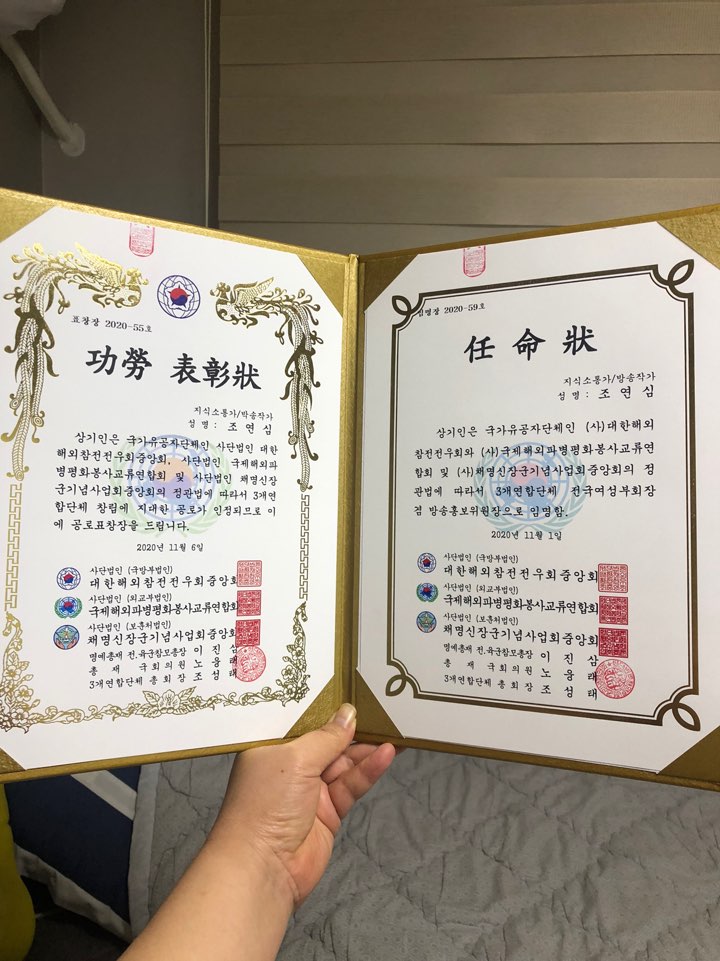 표창장 2020-55호
功勞 表彰狀
지식소통가/방송작가
성 명 : 조 연 심
상기인은 국가유공자단체인 사단법인 대한
해외참전전우회중앙회, 사단법인 국제해외파
병평화봉사교류연합회 및 사단법인 채명신장
군기념사업회중앙회의 정관법에 따라서 3개연
합단체 창립에 지대한 공로가 인정되므로 이
에 공로표창장을 드립니다.
2020년 11월 6일
사단법인 (국방부법인)
대한해외참전전우회중앙회
사단법인 (외교부법인)
국제해외파병평화봉사교류연합회
사단법인 (보훈처법인)
채명신장군기념사업회중앙회
명예총재 전.육군참모총장 이 진 삼
총 재 국회의원 노 웅 래
3개연합단체 총회장 조 성 태
임명장 2020-59호
任 命 狀
지식소통가/방송작가
성 명 : 조 연 심
상기인은 국가유공자단체인 (사)대한해외
참전전우회와 (사)국제해외파병평화봉사교류연
합회 및 (사)채명신장군기념사업회중앙회의 정
관법에 따라서 3개연합단체 전국여성부회장
겸 방송홍보위원장으로 임명함.
2020년 11월 1일
사단법인 (국방부법인)
대한해외참전전우회중앙회
사단법인 (외교부법인)
국제해외파병평화봉사교류연합회
사단법인 (보훈처법인)
채명신장군기념사업회중앙회
명예총재 전.육군참모총장 이 진 삼
총 재 국회의원 노 웅 래
3개연합단체 총회장 조 성 태